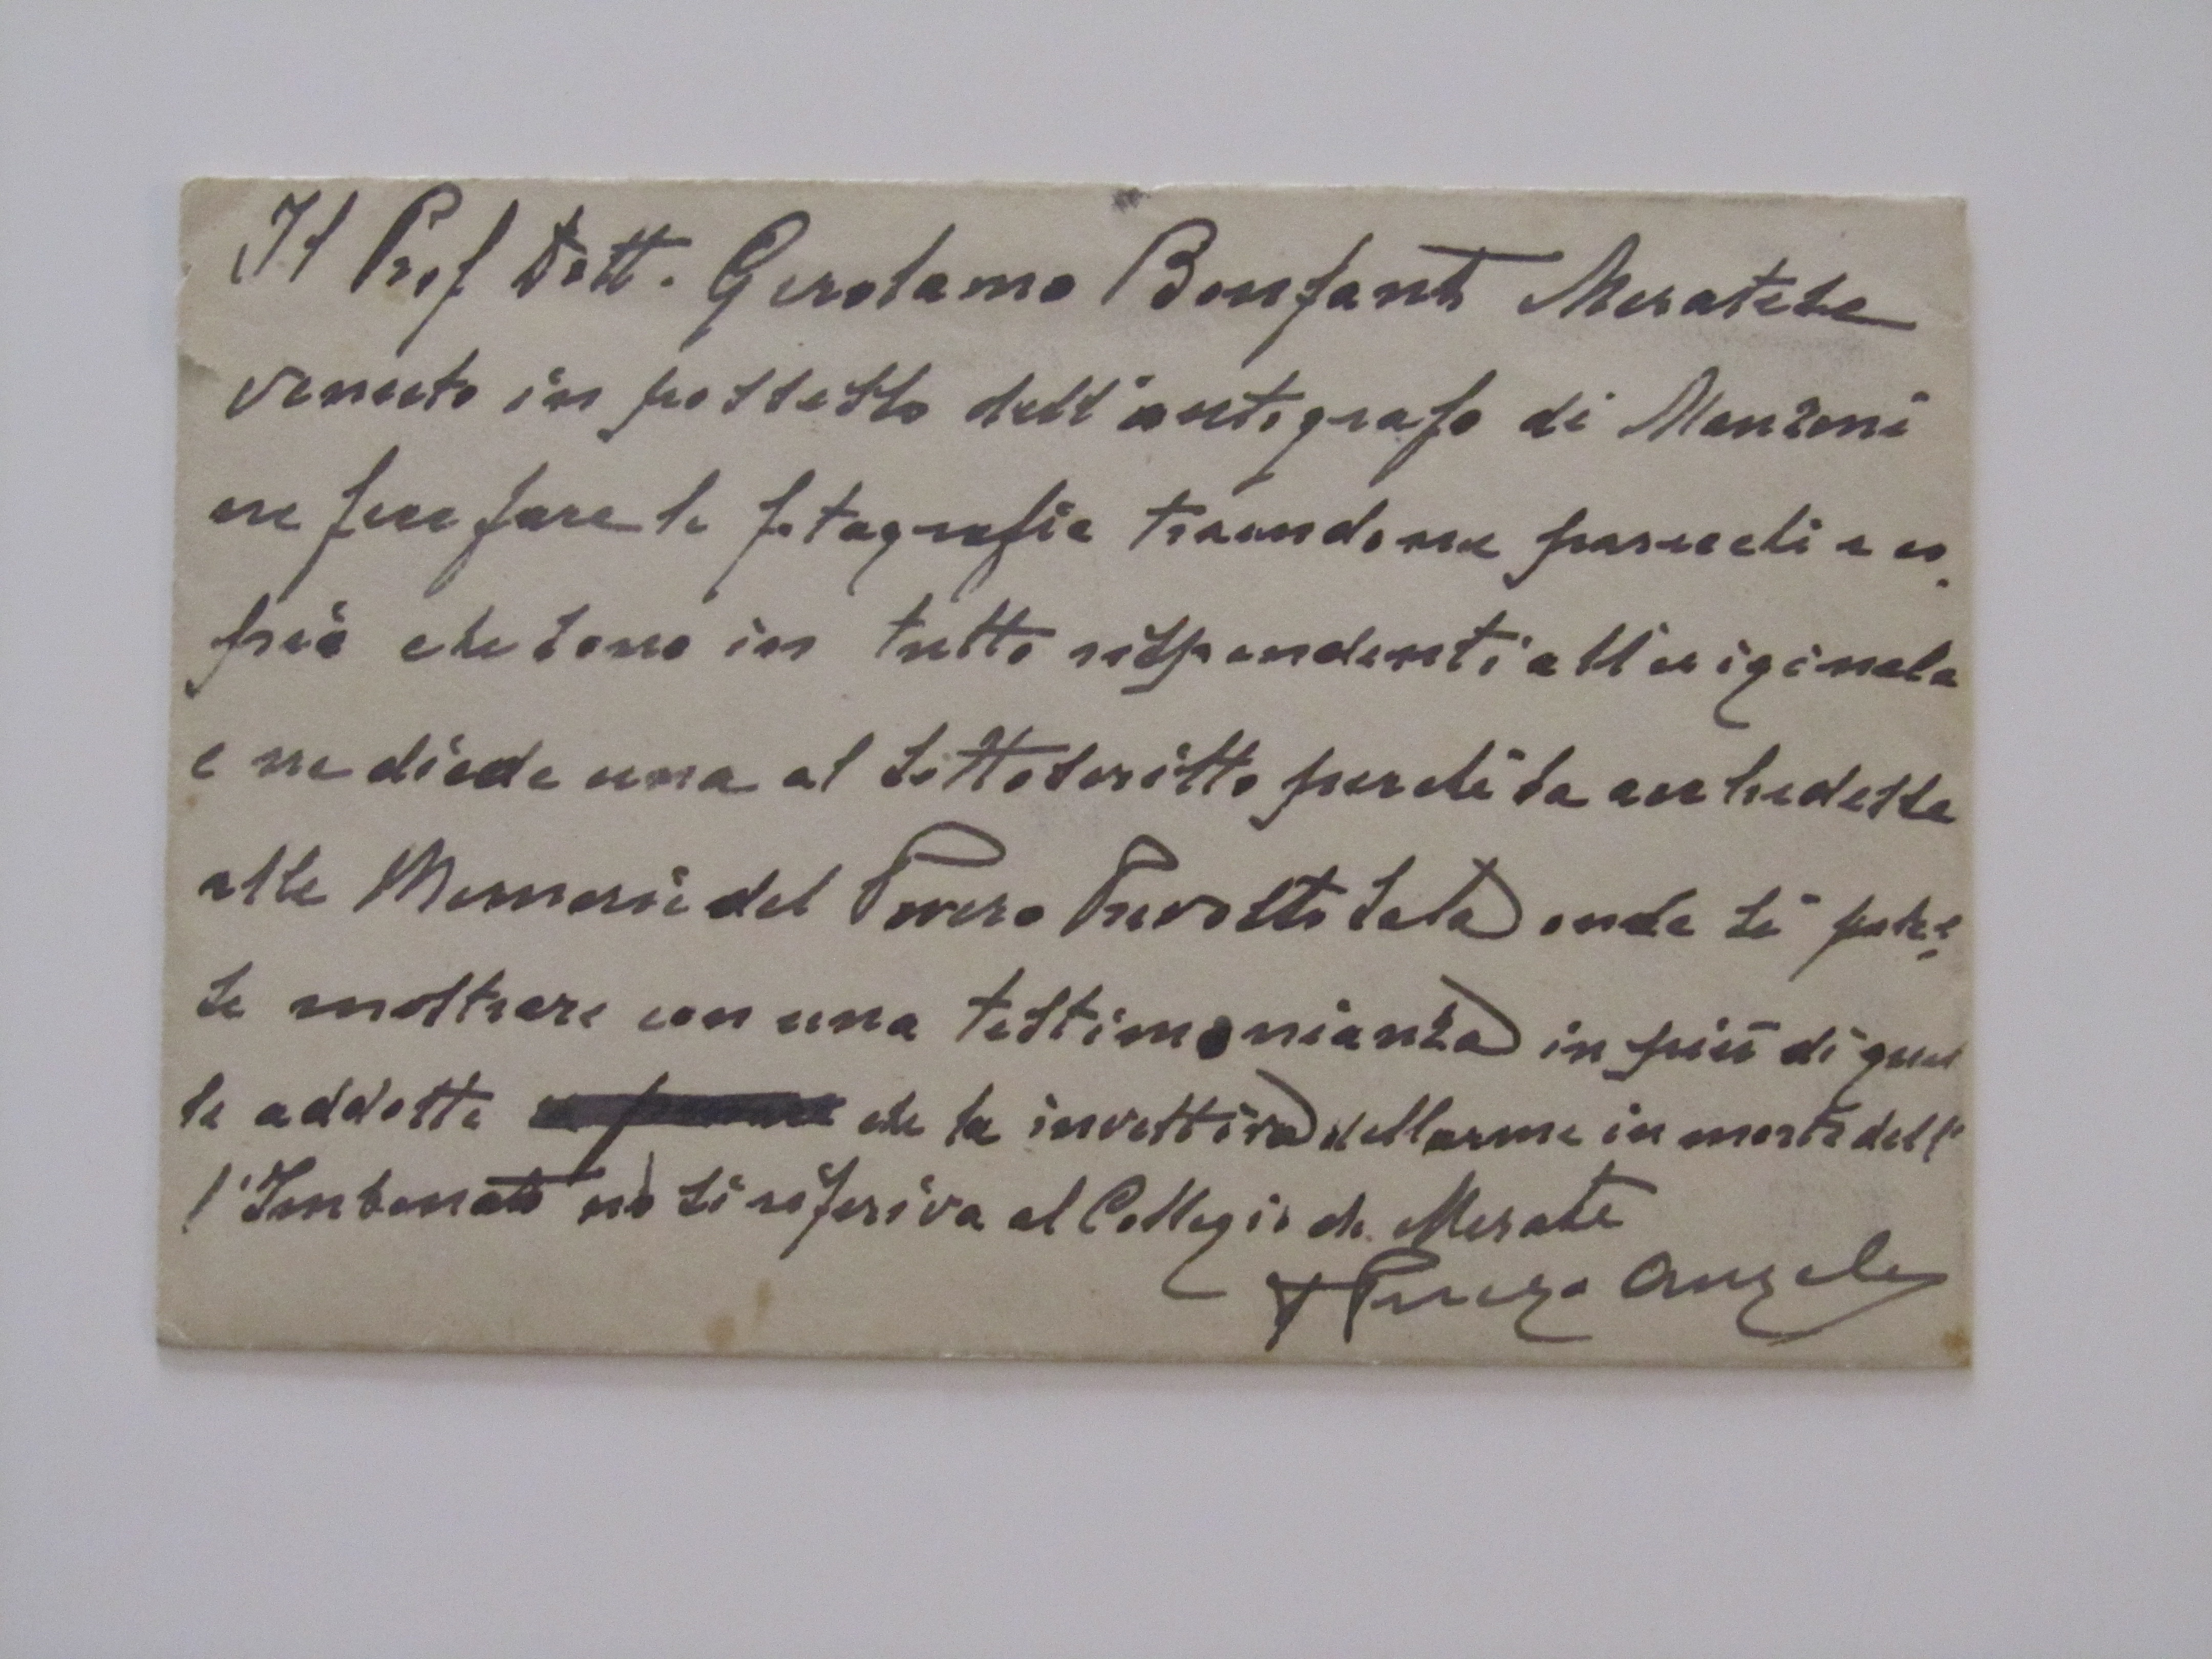 Il Prof Dott. Gerolamo Bonfanti Meratese
venuto in possesso dell'autografo di Manzoni
ne fece fare la fotografia traendone parecchie co
pie che sono in tutto rispondenti all'originale
e ne diede una al sottoscritto perché la
alle Memorie del Povero Prevosto onde si potes
se mostrare con una testimonianza in più di quel
le addotte che la invettiva in morte dell'
l'Imbonati nò si riferiva al Collegio di Merate
Angelo